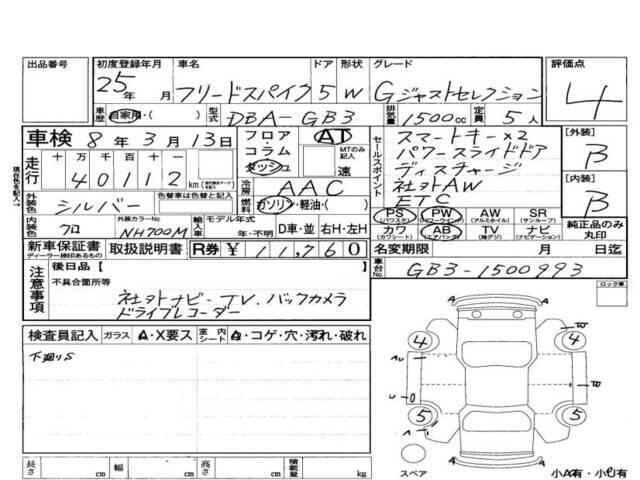 出品番号 初度登録年月 車名 ドア 形状 グレード 評価点
25年 月 フリードスパイク 5 W Gジャストセレクション 4
車歴 自家用・( ) 型式 DBA-GB3 排気量 1500cc 定員 5人
車検 8年3月13日 フロア・コラム ダッシュ AT MTのみ記入 速
セールスポイント スマートキー×2
パワースライドドア
ディスチャージ
社ヲトAW
ETC
[外装] B
[内装] B
現在色を記入→
走行 十万千百十一 40112km
冷房 AAC
外装色 シルバー 色替車は色替と記入 燃料 ガソリン・軽油・( )
PS (パワステ) PW (パワーウインド) AW (アルミホイル) SR (サンルーフ)
カワ (カワシート) AB (エアバック) TV (地デジ) ナビ
純正品のみ丸印
内装色 クロ 外装カラーNo. NH700M 輸入車 モデル年式 年・不明 D車・並 右H・左H
新車保証書 ディーラー捺印あるもの 取扱説明書 R券 ¥11,760 名変期限 月 日迄
車台No. GB3-1500993
注意事項 後日品【 】
不具合箇所等
社ヲトナビ-TV.バックカメラ
ドライブレコーダー
ロック車
検査員記入 ガラス A・X要ス 室内シート A・コゲ・穴・汚れ・破れ
下廻りS
4 4
5 5
AU
U
W
W
A
スペア
小A有・小U有
長さ cm 幅 cm 高さ cm 積載量 kg